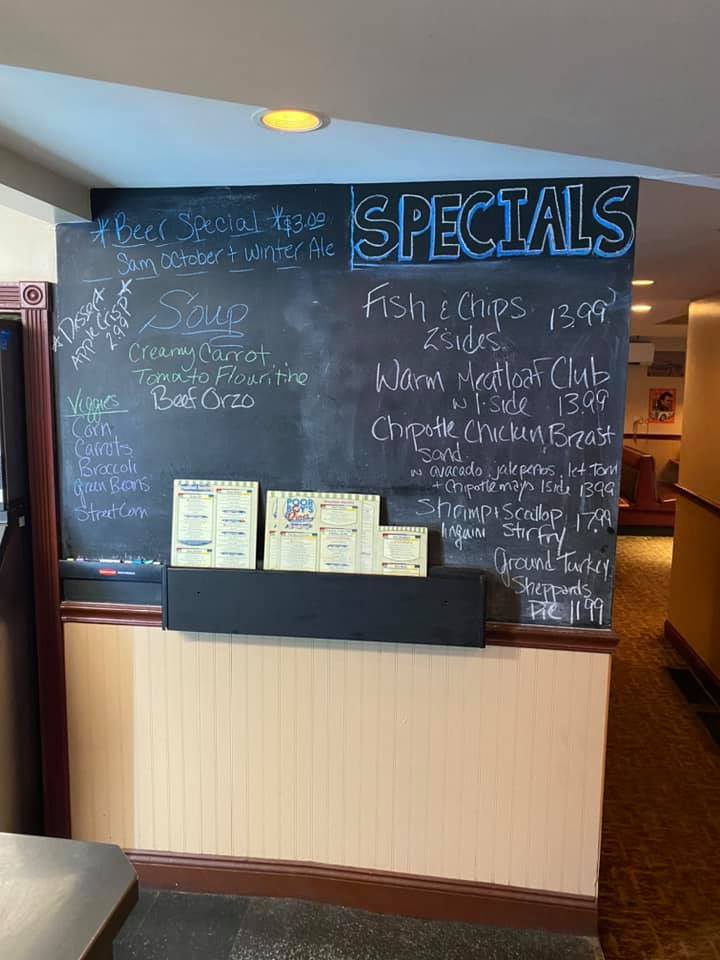 *Beer Special *$3.00
Sam October + Winter Ale
SPECIALS
*Dessart*
Apple Crisp
2.99
Soup
Creamy Carrot
Tomato Flouritine
Beef Orzo
Veggies
Corn
Carrots
Broccoli
Green Beans
Street Corn
Fish & Chips 13.99
2 sides
Warm Meatloaf Club
w 1 side 13.99
Chipotle Chicken Breast
Sand.
w avacado, jalepenos, let tom
+ chipotle mayo 1 side 13.99
Shrimp + Scallop 17.99
linguini Stir fry
Ground Turkey
Sheppards
Pie 11.99
POOR
BOY'S
Diner